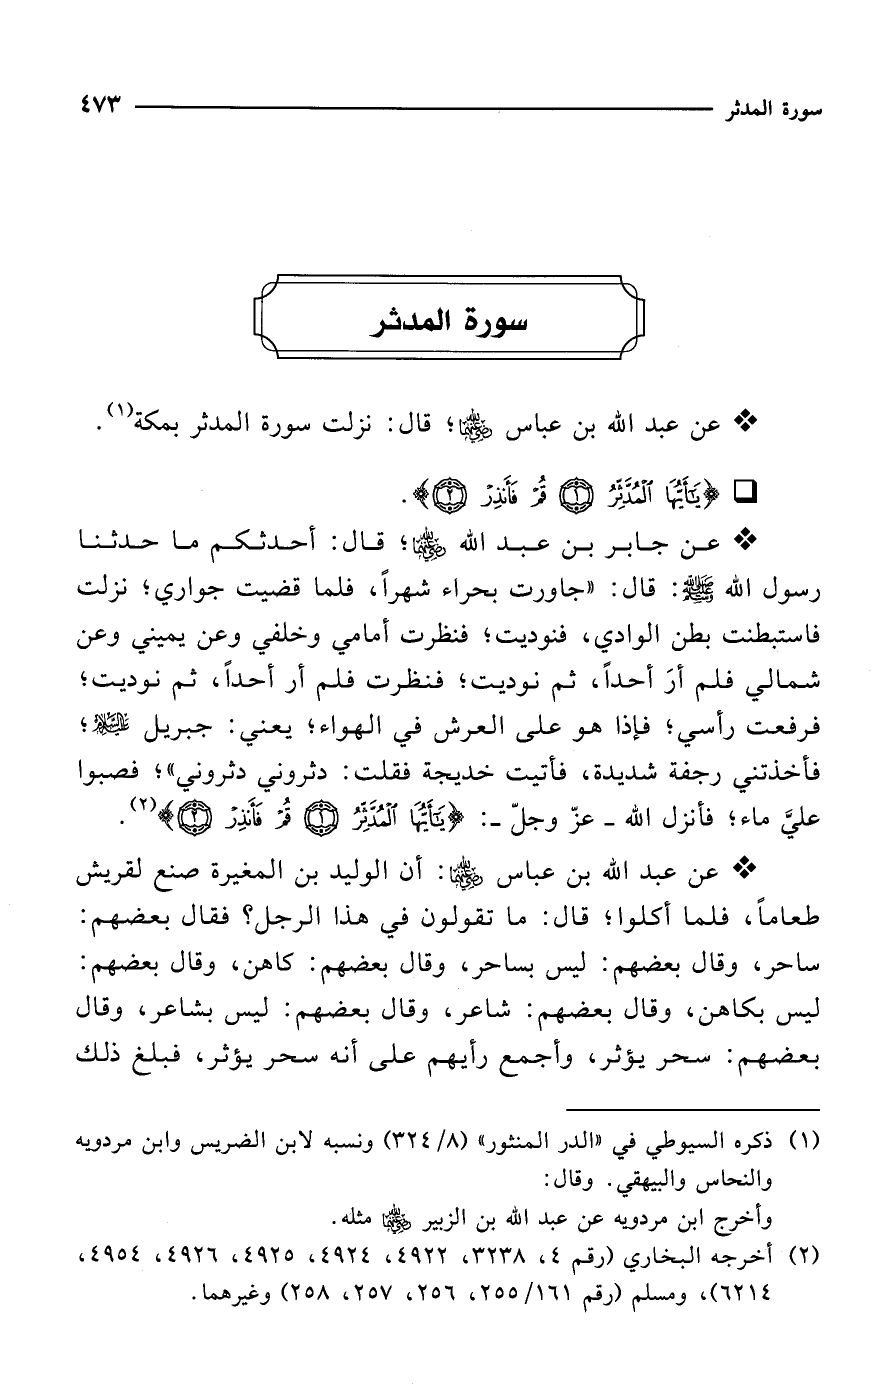 سورة المدثر ٤٧٣
سورة المدثر
❖ عن عبد الله بن عباس رضي الله عنهما؛ قال: نزلت سورة المدثر بمكة(١).
❑ ﴿يَٰٓأَيُّهَا ٱلْمُدَّثِّرُ ۝١ قُمْ فَأَنذِرْ ۝٢﴾.
❖ عن جابر بن عبد الله رضي الله عنهما؛ قال: أحدثكم ما حدثنا
رسول الله ﷺ: قال: «جاورت بحراء شهراً، فلما قضيت جواري؛ نزلت
فاستبطنت بطن الوادي، فنوديت؛ فنظرت أمامي وخلفي وعن يميني وعن
شمالي فلم أرَ أحداً، ثم نوديت؛ فنظرت فلم أر أحداً، ثم نوديت؛
فرفعت رأسي؛ فإذا هو على العرش في الهواء؛ يعني: جبريل عليه السلام؛
فأخذتني رجفة شديدة، فأتيت خديجة فقلت: دثروني دثروني»؛ فصبوا
عليَّ ماء؛ فأنزل الله ـ عزّ وجلّ ـ: ﴿يَٰٓأَيُّهَا ٱلْمُدَّثِّرُ ۝١ قُمْ فَأَنذِرْ ۝٢﴾(٢).
❖ عن عبد الله بن عباس رضي الله عنهما: أن الوليد بن المغيرة صنع لقريش
طعاماً، فلما أكلوا؛ قال: ما تقولون في هذا الرجل؟ فقال بعضهم:
ساحر، وقال بعضهم: ليس بساحر، وقال بعضهم: كاهن، وقال بعضهم:
ليس بكاهن، وقال بعضهم: شاعر، وقال بعضهم: ليس بشاعر، وقال
بعضهم: سحر يؤثر، وأجمع رأيهم على أنه سحر يؤثر، فبلغ ذلك
(١) ذكره السيوطي في «الدر المنثور» (٨/ ٣٢٤) ونسبه لابن الضريس وابن مردويه
والنحاس والبيهقي. وقال:
وأخرج ابن مردويه عن عبد الله بن الزبير رضي الله عنهما مثله.
(٢) أخرجه البخاري (رقم ٤، ٣٢٣٨، ٤٩٢٢، ٤٩٢٤، ٤٩٢٥، ٤٩٢٦، ٤٩٥٤،
٦٢١٤)، ومسلم (رقم ١٦١/ ٢٥٥، ٢٥٦، ٢٥٧، ٢٥٨) وغيرهما.